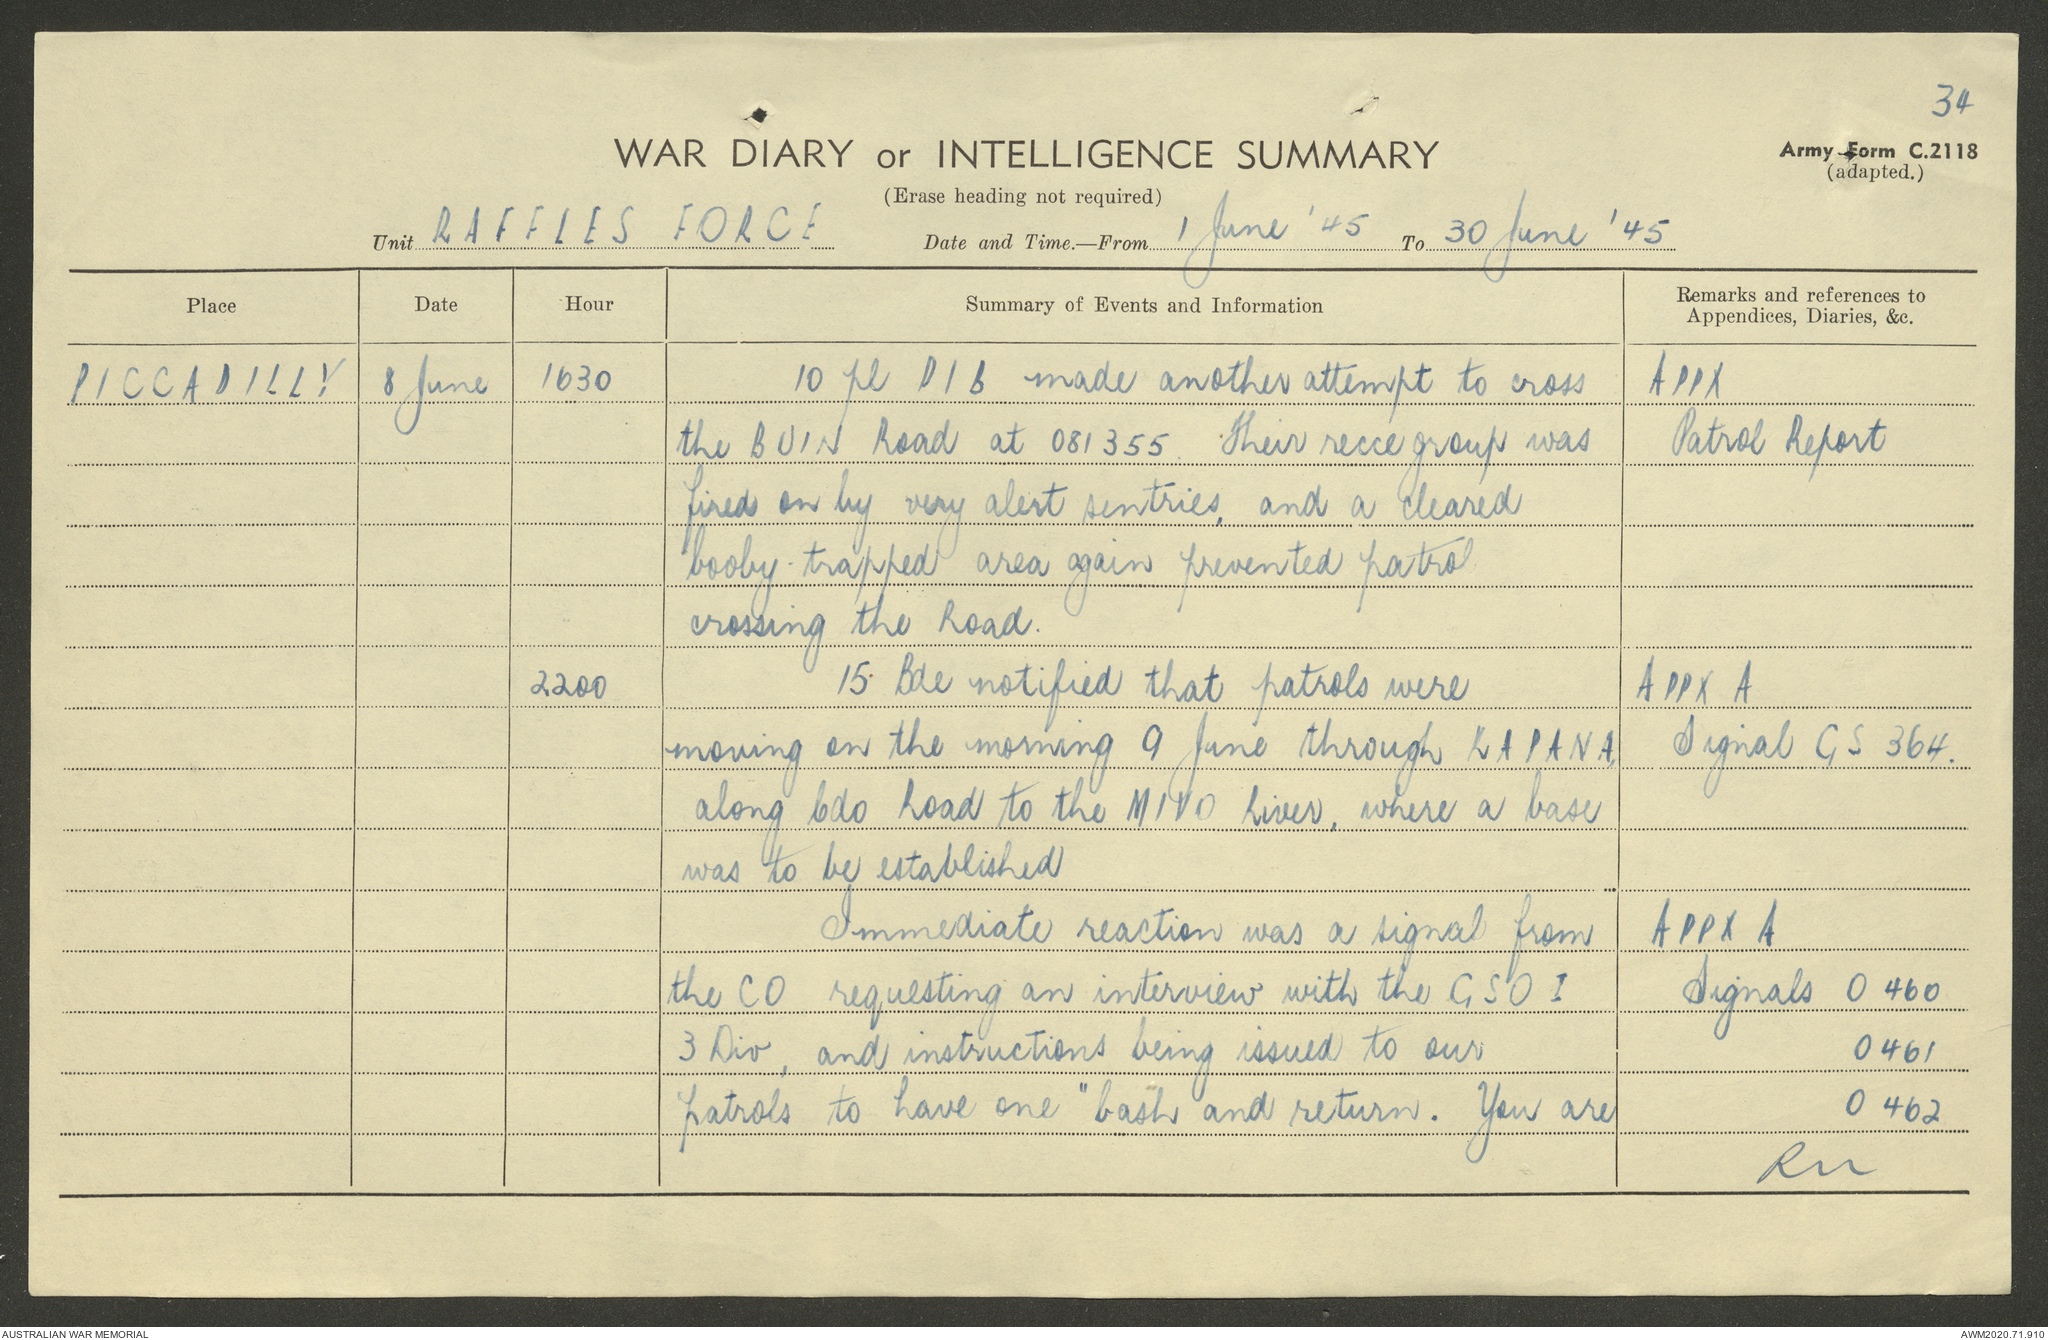 34
WAR DIARY or INTELLIGENCE SUMMARY
Army Form C.2118
(adapted.)
(Erase heading not required)
Unit RAFFLES FORCE Date and Time.—From 1 June '45 To 30 June '45
Place Date Hour Summary of Events and Information Remarks and references to Appendices, Diaries, &c.
PICCADILLY 8 June 1630 10 pl PIB made another attempt to cross APPX
the BUIN Road at 081355. Their recce group was Patrol Report
fired on by very alert sentries, and a cleared
booby-trapped area again prevented patrol
crossing the Road.
2200 15 Bde notified that patrols were APPX A
moving on the morning 9 June through KAPANA, Signal GS 364.
along Cdo Road to the MIVO River, where a base
was to be established
Immediate reaction was a signal from APPX A
the CO requesting an interview with the GSO I Signals O 460
3 Div, and instructions being issued to our O 461
patrols to have one "bash and return. You are O 462
AUSTRALIAN WAR MEMORIAL
AWM2020.71.910